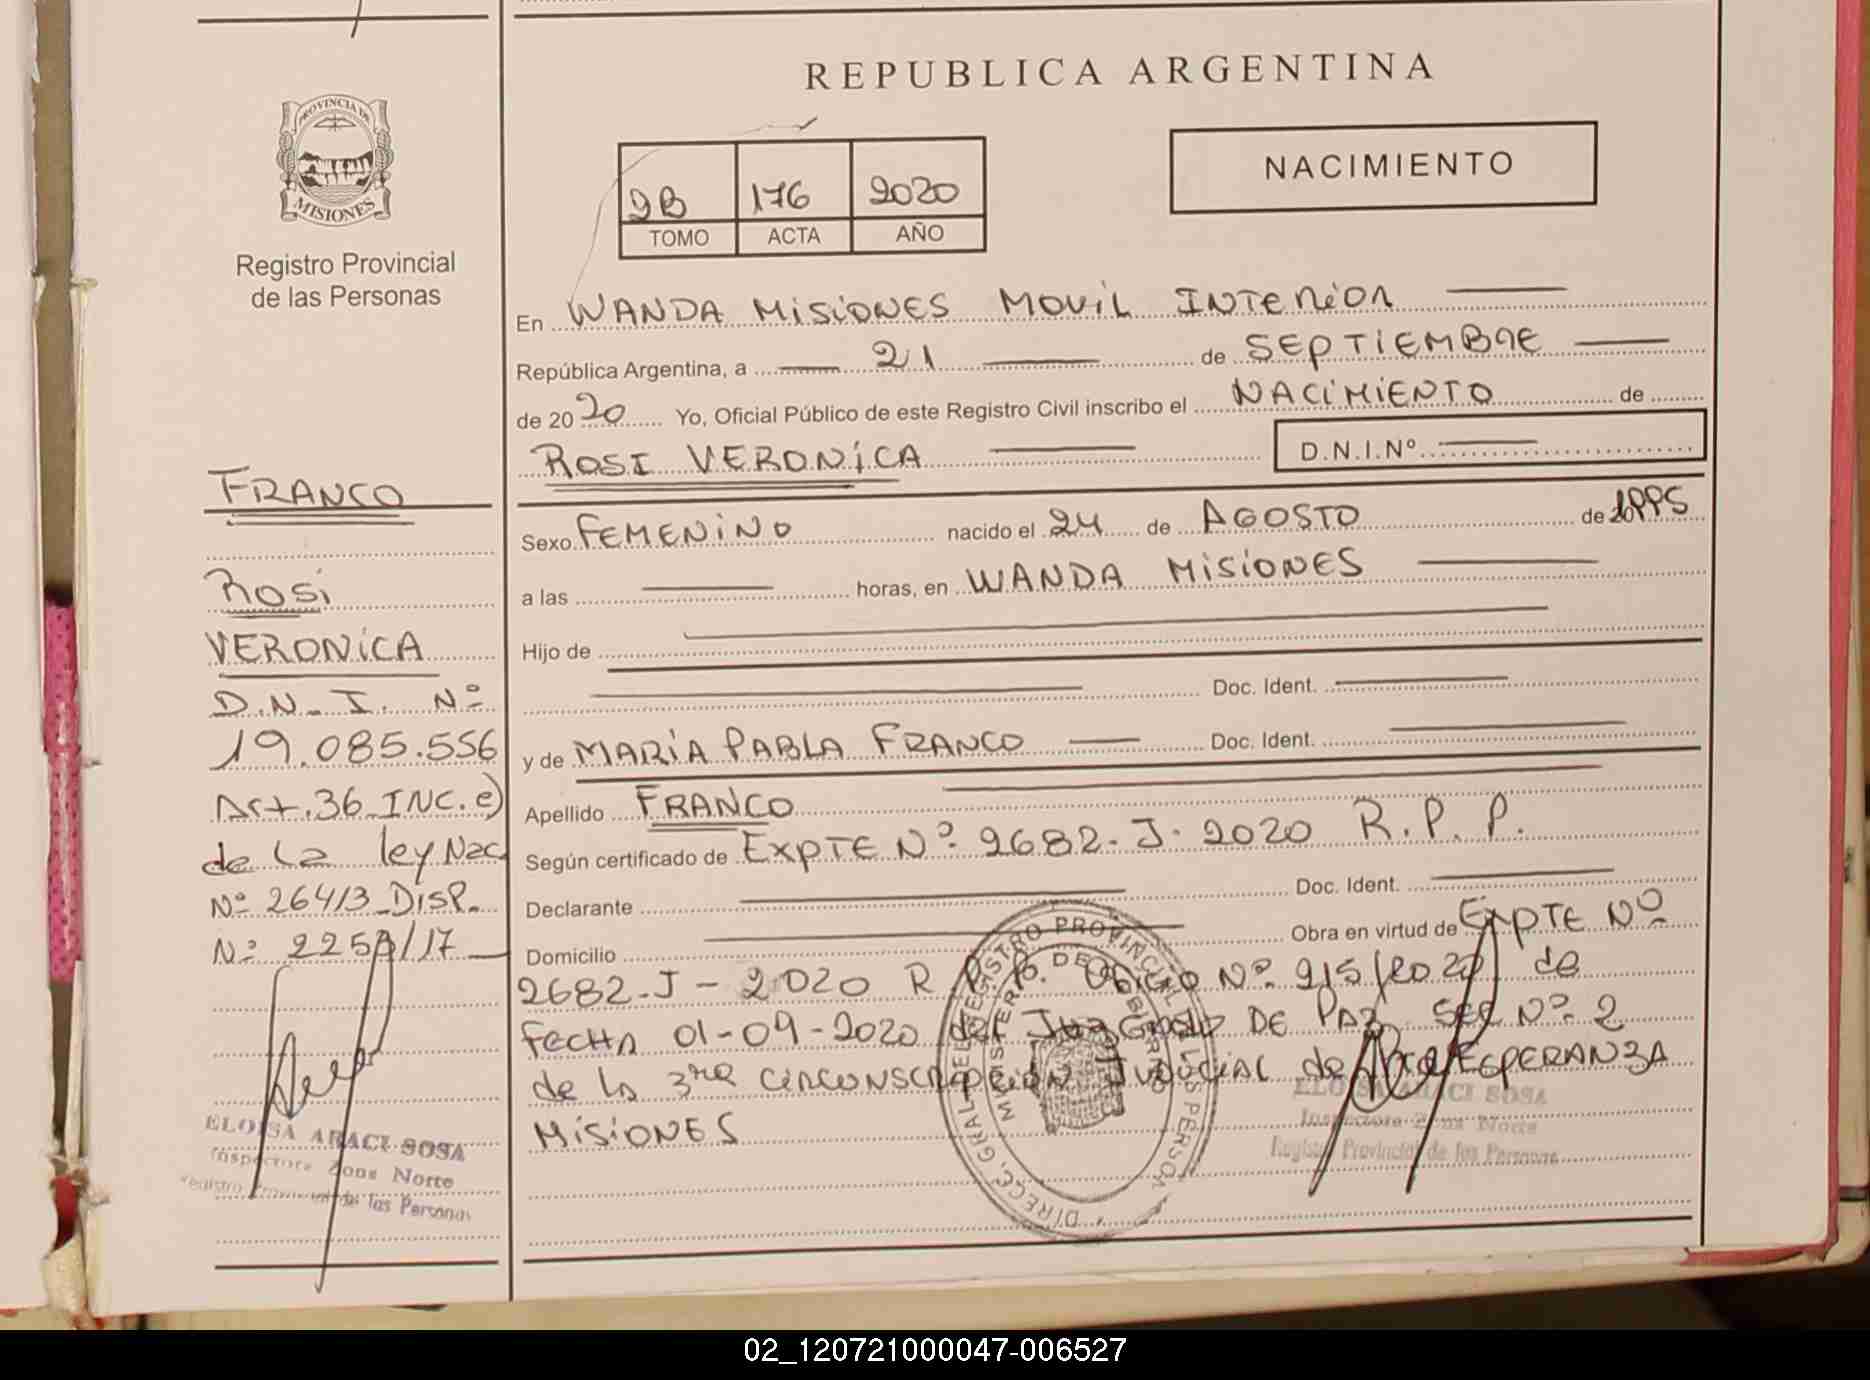 REPUBLICA ARGENTINA
PROVINCIA DE
MISIONES
Registro Provincial
de las Personas
2B 176 2020
TOMO ACTA AÑO
NACIMIENTO
En WANDA MISIONES MOVIL INTERIOR
República Argentina, a 21 de SEPTIEMBRE
de 2020 Yo, Oficial Público de este Registro Civil inscribo el NACIMIENTO de
ROSI VERONICA D.N.I.Nº
Sexo FEMENINO nacido el 24 de AGOSTO de
a las horas, en WANDA MISIONES
Hijo de
Doc. Ident.
y de MARIA PABLA FRANCO Doc. Ident.
Apellido FRANCO
Según certificado de EXPTE Nº 2682-J-2020 R.P.P.
Declarante Doc. Ident.
Domicilio Obra en virtud de EXPTE Nº
2682-J-2020 R.P.P. Oficio Nº 915/2020 de
FECHA 01-09-2020 del Juzgado DE PAZ SEC Nº 2
de la 3ra CIRCONSCRIPCION JUDICIAL de Pto ESPERANZA
MISIONES
FRANCO
ROSI
VERONICA
D.N.I. Nº
19.085.556
Art.36 INC.e)
de la ley Nac
Nº 26413 DISP.
Nº /17
ELOISA ARACI SOSA
Inspectora Zona Norte
Registro Provincial de las Personas
ELOISA ARACI SOSA
Inspectora Zona Norte
Registro Provincial de las Personas
DIRECC. GRAL. DEL REGISTRO PROVINCIAL DE LAS PERSONAS
MINISTERIO DE GOBIERNO
02_120721000047-006527